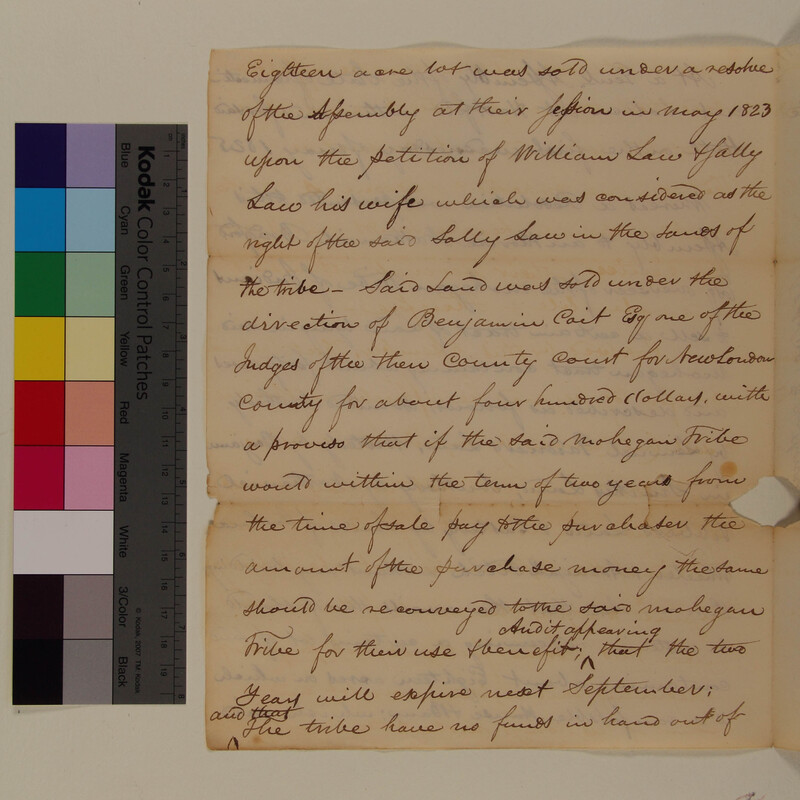 Eighteen acre lot was sold under a resolve
of the Assembly at their session in may 1823
upon the petition of William Law & Sally
Law his wife which was considered as the
right of the said Sally Law in the lands of
the tribe – Said Land was sold under the
direction of Benjamin Coit Esq one of the
Judges of the then County Court for New London
County for about four hundred dollars, with
a proviso that if the said mohegan Tribe
would within the term of two years from
the time of sale pay to the purchaser the
amount of the purchase money the same
should be reconveyed to the said mohegan
And it appearing
Tribe for their use & benefit; ^ that the two
Years will expire next September;
and that
The tribe have no funds in hand out of
Kodak Color Control Patches
Blue
Cyan
Green
Yellow
Red
Magenta
White
3/Color
Black
© Kodak, 2007 TM: Kodak